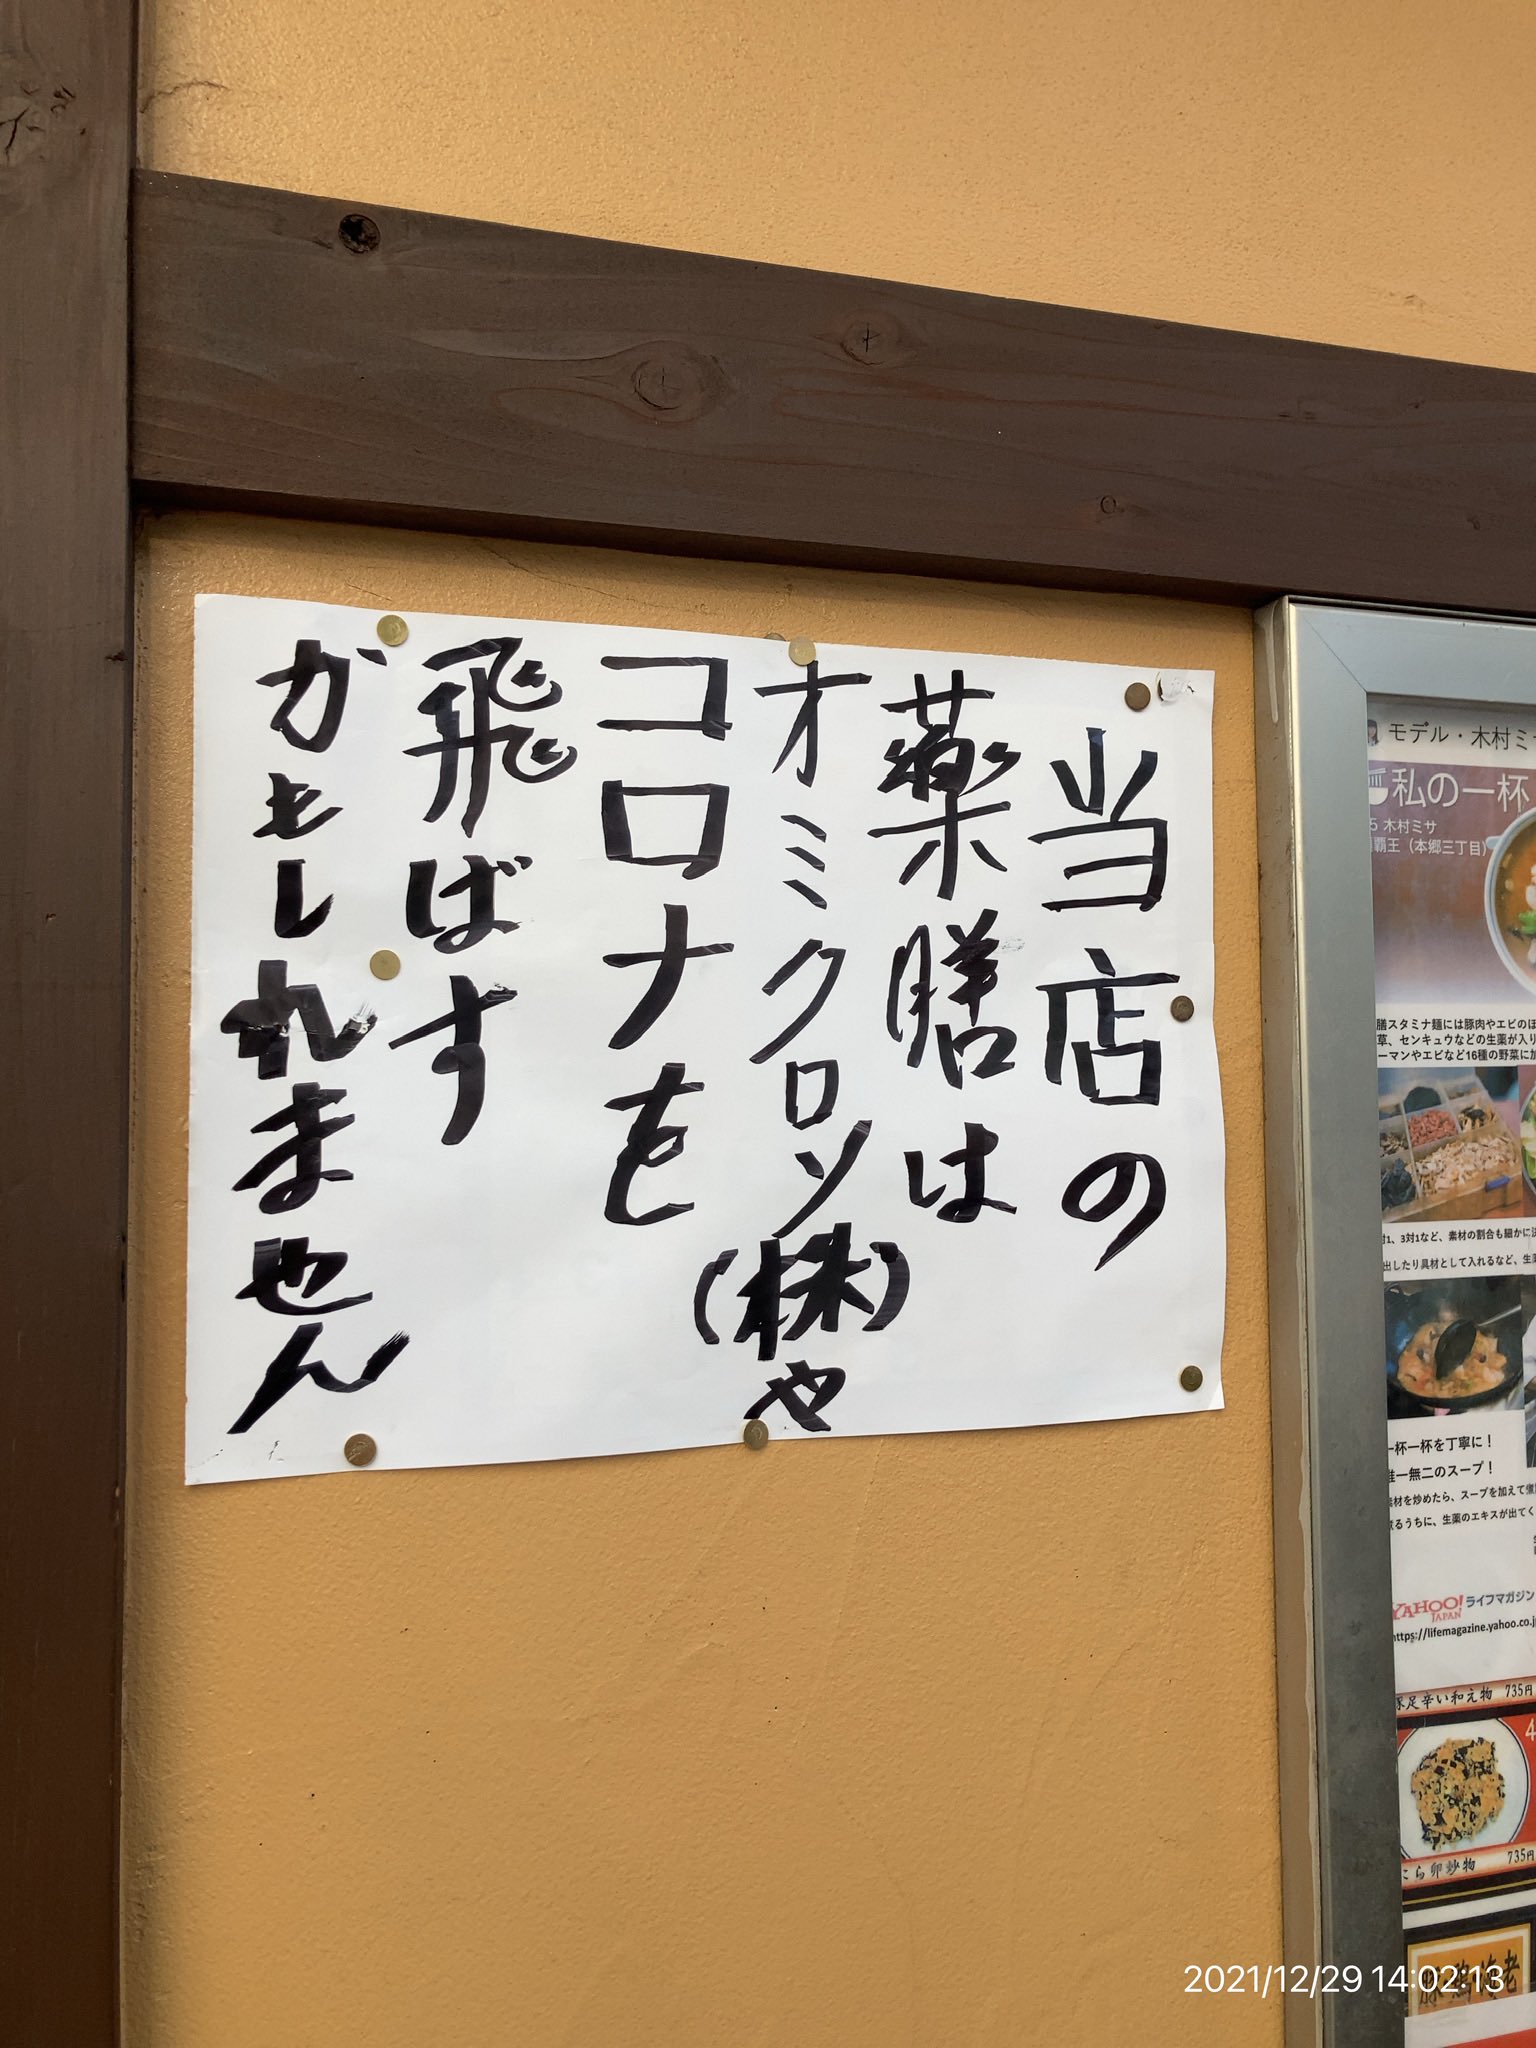 当店の
薬膳は
オミクロン(株)や
コロナを
飛ばす
かもしれません
モデル・木村ミサ
私の一杯
木村ミサ
覇王（本郷三丁目）
膳スタミナ麺には豚肉やエビのほ
草、センキュウなどの生薬が入り
ーマンやエビなど16種の野菜に加
対1、3対1など、素材の割合も細かに決
出したり具材として入れるなど、生薬
一杯一杯を丁寧に！
唯一無二のスープ！
素材を炒めたら、スープを加えて煮
煮るうちに、生薬のエキスが出てく
YAHOO! JAPAN ライフマガジン
https://lifemagazine.yahoo.co.j
豚足辛い和え物 735円
4
にら卵炒物 735円
2021/12/29 14:02:13